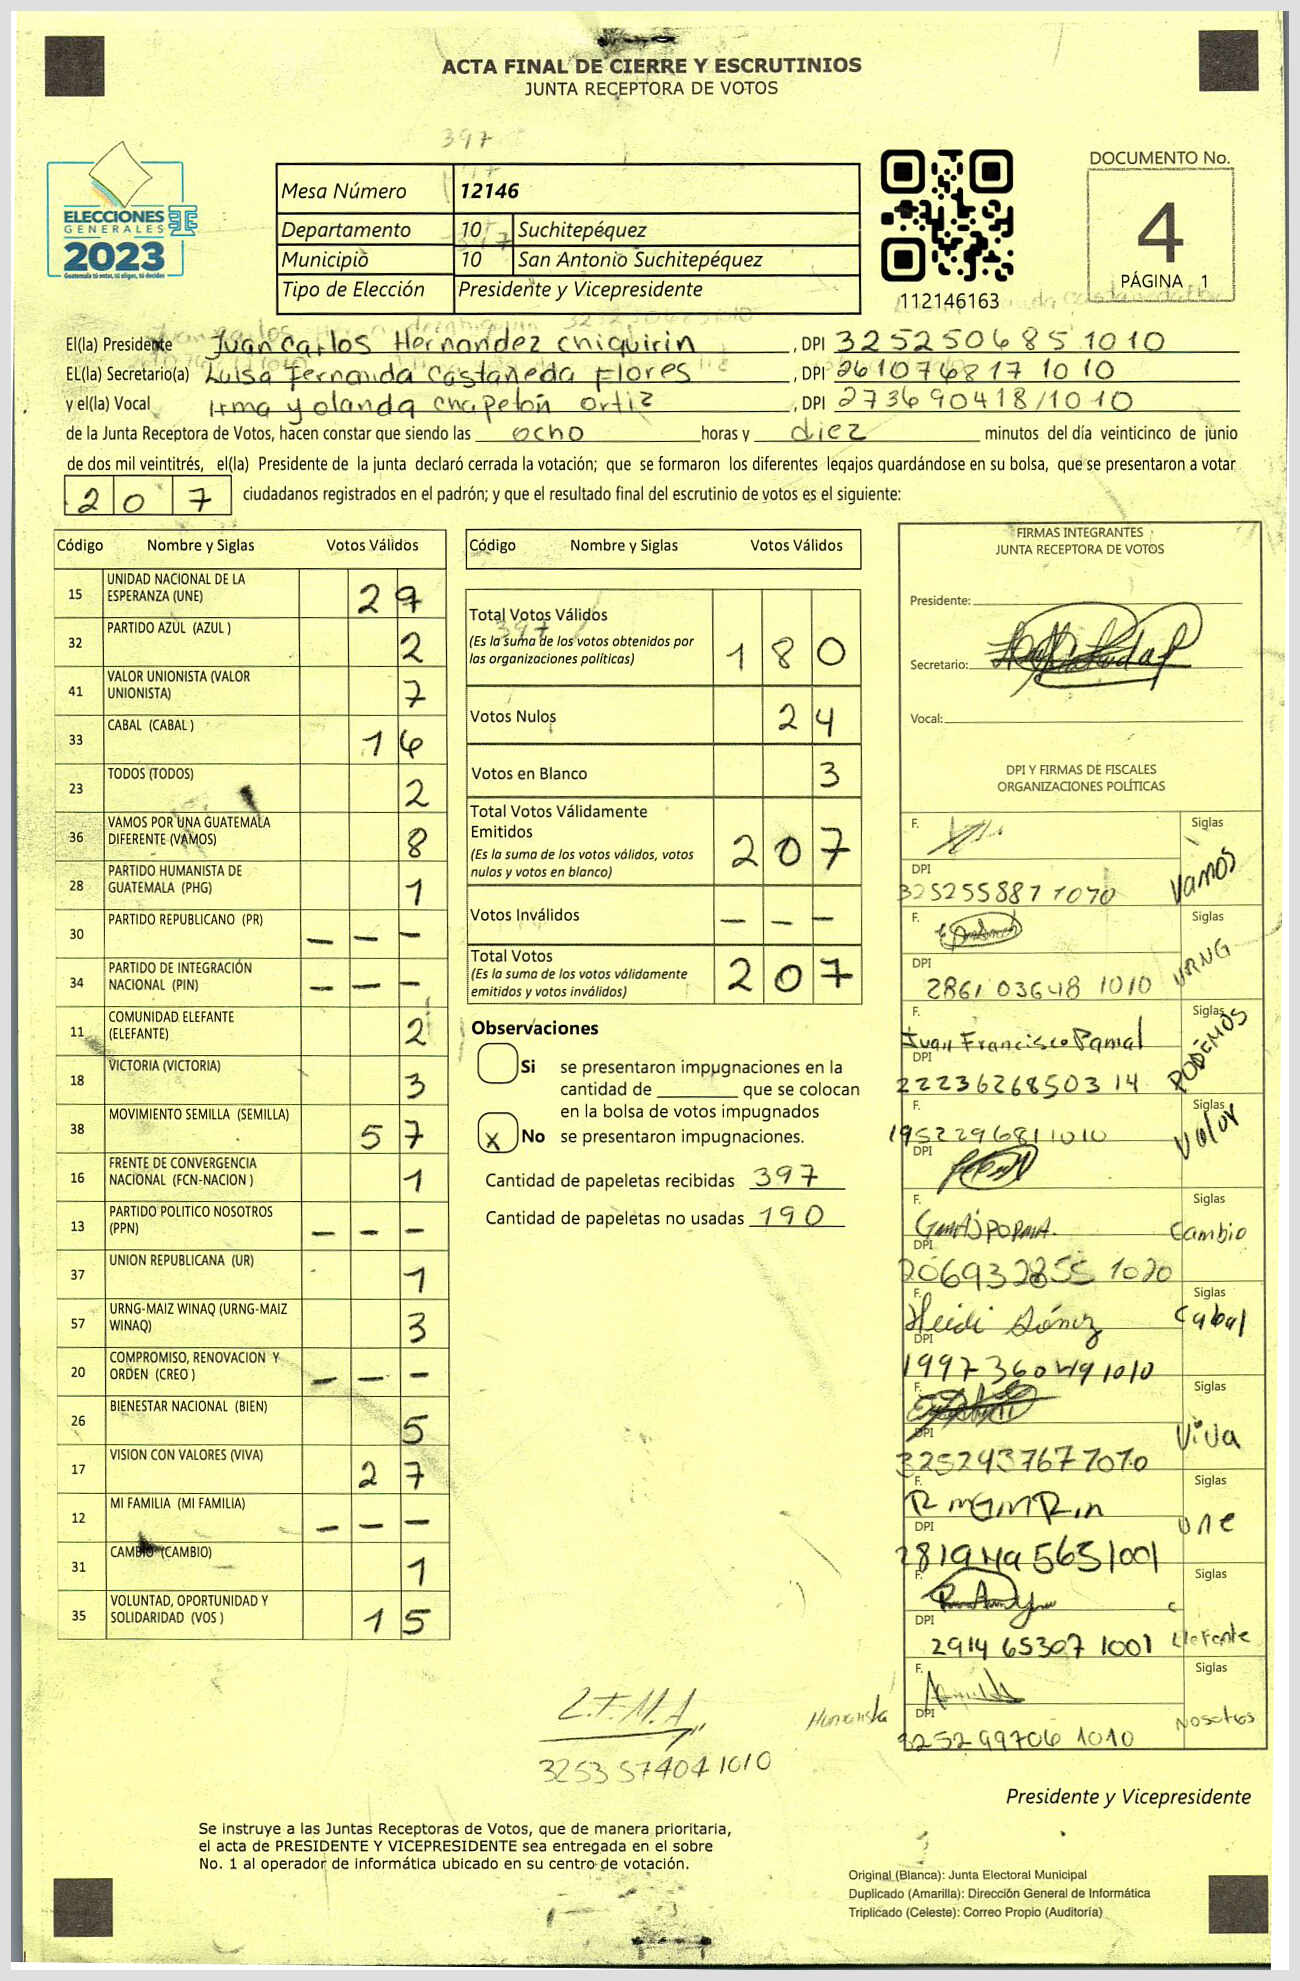 ACTA FINAL DE CIERRE Y ESCRUTINIOS
JUNTA RECEPTORA DE VOTOS
397
ELECCIONES
GENERALES
2023
Guatemala tú entras, tú eliges, tú decides
Mesa Número 12146
Departamento 10 Suchitepéquez
Municipio 10 San Antonio Suchitepéquez
Tipo de Elección Presidente y Vicepresidente
112146163
DOCUMENTO No.
4
PÁGINA 1
El(la) Presidente Juan Carlos Hernandez Chiquirin, DPI 325250685 1010
EL(la) Secretario(a) Luisa Fernanda Castañeda Flores, DPI 261076817 1010
y el(la) Vocal Irma Yolanda Chapetón Ortiz, DPI 273690418/1010
de la Junta Receptora de Votos, hacen constar que siendo las ocho horas y diez minutos del día veinticinco de junio
de dos mil veintitrés, el(la) Presidente de la junta declaró cerrada la votación; que se formaron los diferentes legajos guardándose en su bolsa, que se presentaron a votar
207 ciudadanos registrados en el padrón; y que el resultado final del escrutinio de votos es el siguiente:
Código Nombre y Siglas Votos Válidos
15 UNIDAD NACIONAL DE LA ESPERANZA (UNE) 29
32 PARTIDO AZUL (AZUL ) 2
41 VALOR UNIONISTA (VALOR UNIONISTA) 7
33 CABAL (CABAL ) 16
23 TODOS (TODOS) 2
36 VAMOS POR UNA GUATEMALA DIFERENTE (VAMOS) 8
28 PARTIDO HUMANISTA DE GUATEMALA (PHG) 1
30 PARTIDO REPUBLICANO (PR) - - -
34 PARTIDO DE INTEGRACIÓN NACIONAL (PIN) - - -
11 COMUNIDAD ELEFANTE (ELEFANTE) 2
18 VICTORIA (VICTORIA) 3
38 MOVIMIENTO SEMILLA (SEMILLA) 57
16 FRENTE DE CONVERGENCIA NACIONAL (FCN-NACION ) 1
13 PARTIDO POLITICO NOSOTROS (PPN) - - -
37 UNION REPUBLICANA (UR) 1
57 URNG-MAIZ WINAQ (URNG-MAIZ WINAQ) 3
20 COMPROMISO, RENOVACION Y ORDEN (CREO ) - - -
26 BIENESTAR NACIONAL (BIEN) 5
17 VISION CON VALORES (VIVA) 27
12 MI FAMILIA (MI FAMILIA) - - -
31 CAMBIO (CAMBIO) 1
35 VOLUNTAD, OPORTUNIDAD Y SOLIDARIDAD (VOS ) 15
Código Nombre y Siglas Votos Válidos
Total Votos Válidos 180
397
(Es la suma de los votos obtenidos por
las organizaciones políticas)
Votos Nulos 24
Votos en Blanco 3
Total Votos Válidamente
Emitidos 207
(Es la suma de los votos válidos, votos
nulos y votos en blanco)
Votos Inválidos - - -
Total Votos 207
(Es la suma de los votos válidamente
emitidos y votos inválidos)
Observaciones
Si se presentaron impugnaciones en la
cantidad de ________ que se colocan
en la bolsa de votos impugnados
x No se presentaron impugnaciones.
Cantidad de papeletas recibidas 397
Cantidad de papeletas no usadas 190
FIRMAS INTEGRANTES
JUNTA RECEPTORA DE VOTOS
Presidente:
Secretario:
Vocal:
DPI Y FIRMAS DE FISCALES
ORGANIZACIONES POLÍTICAS
F. Siglas
DPI Vamos
325255887 1010
F. Siglas
DPI URNG
2861 03648 1010
F. Siglas
Juan Francisco Pamal PODEMOS
DPI
2223626850314
F. Siglas
1952296811010 Valor
DPI
F. Siglas
Cambio
DPI
206932855 1020
F. Siglas
Heidi Cabal
DPI
1997360491010
F. Siglas
DPI Viva
3252437677010
F. Siglas
DPI une
F. Siglas
DPI Elefante
2914 65307 1001
F. Siglas
DPI Nosotros
3252 99706 1010
L.T.M.A Humanista
3253 57404 1010
Presidente y Vicepresidente
Se instruye a las Juntas Receptoras de Votos, que de manera prioritaria,
el acta de PRESIDENTE Y VICEPRESIDENTE sea entregada en el sobre
No. 1 al operador de informática ubicado en su centro de votación.
Original (Blanca): Junta Electoral Municipal
Duplicado (Amarilla): Dirección General de Informática
Triplicado (Celeste): Correo Propio (Auditoría)